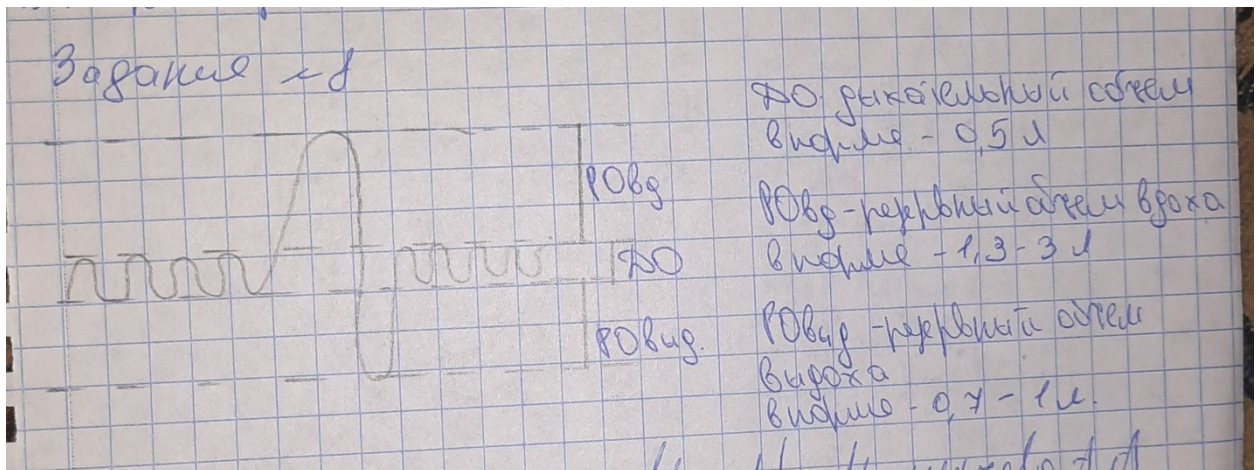 Задание №8
РОвд
ДО
РОвыд.
ДО дыхательный объем
в норме - 0,5 л
РОвд - резервный объем вдоха
в норме - 1,3 - 3 л
РОвыд - резервный объем
выдоха
в норме - 0,7 - 1 л.